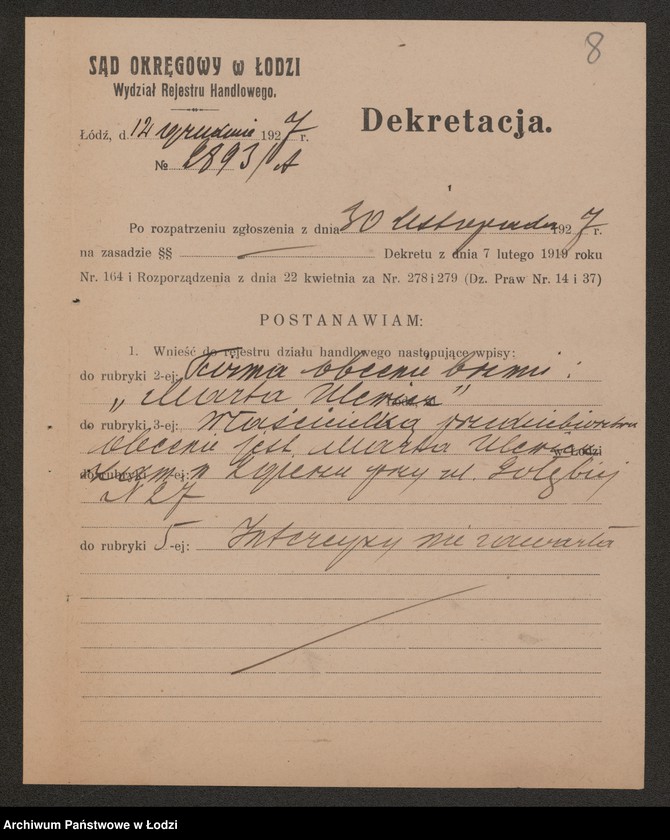 8
SĄD OKRĘGOWY w ŁODZI
Wydział Rejestru Handlowego.
Łódź, d. 12 grudnia 1927 r.
Dekretacja.
№ 2893/A
Po rozpatrzeniu zgłoszenia z dnia 30 listopada 1927 r.
na zasadzie §§ — Dekretu z dnia 7 lutego 1919 roku
Nr. 164 i Rozporządzenia z dnia 22 kwietnia za Nr. 278 i 279 (Dz. Praw Nr. 14 i 37)
POSTANAWIAM:
1. Wnieść do rejestru działu handlowego następujące wpisy:
do rubryki 2-ej: Firma obecnie brzmi:
„Marta
do rubryki 3-ej: Właścicielką przedsiębiorstwa
obecnie jest Marta w Łodzi
do rubryki -ej: zam. w Zgierzu przy ul. Gołębiej
N 27
do rubryki 5-ej: Intercyzy nie zawarła
Archiwum Państwowe w Łodzi